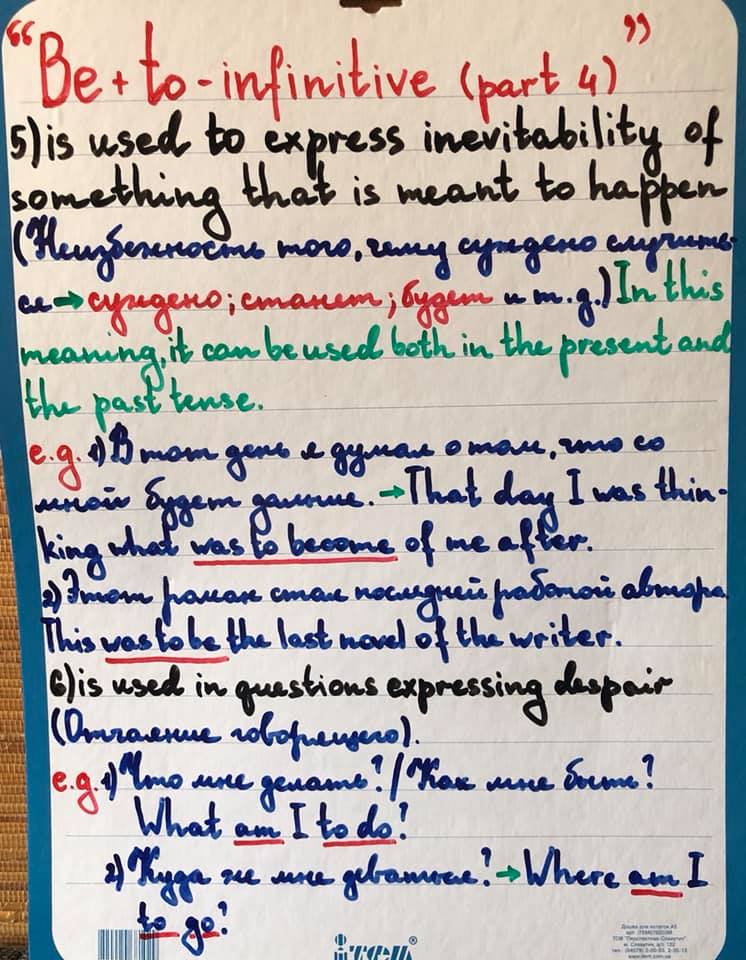 "Be + to - infinitive (part 4)"
5) is used to express inevitability of
something that is meant to happen
(Неизбежность того, чему суждено случить-
ся → суждено; станет; будет и т.д.) In this
meaning, it can be used both in the present and
the past tense.
e.g. 1) В тот день я думал о том, что со
мной будет дальше. → That day I was thin-
king what was to become of me after.
2) Этот роман стал последней работой автора.
This was to be the last novel of the writer.
6) is used in questions expressing despair
(Отчаяние говорящего).
e.g. 1) Что мне делать? / Как мне быть?
What am I to do?
2) Куда же мне деваться? → Where am I
to go?
Дошка для нотаток А5
www.item.com.ua